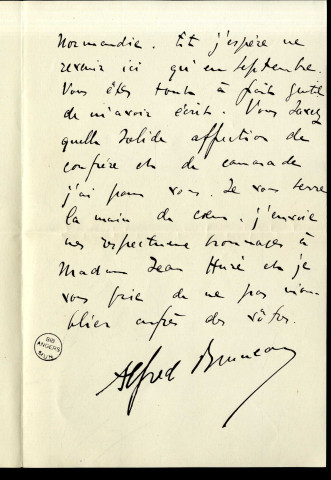 Normandie. Et j'espère ne
revenir ici qu'en septembre.
Vous êtes tout à fait gentil
de m'avoir écrit. Vous savez
quelle solide affection de
confrère et de camarade
j'ai pour vous. Je vous serre
la main de cœur. j'envoie
mes respectueux hommages à
Madame Jean Huré et je
vous prie de ne pas m'ou-
blier auprès des vôtres.
Alfred Bruneau
BIB
ANGERS
MUN